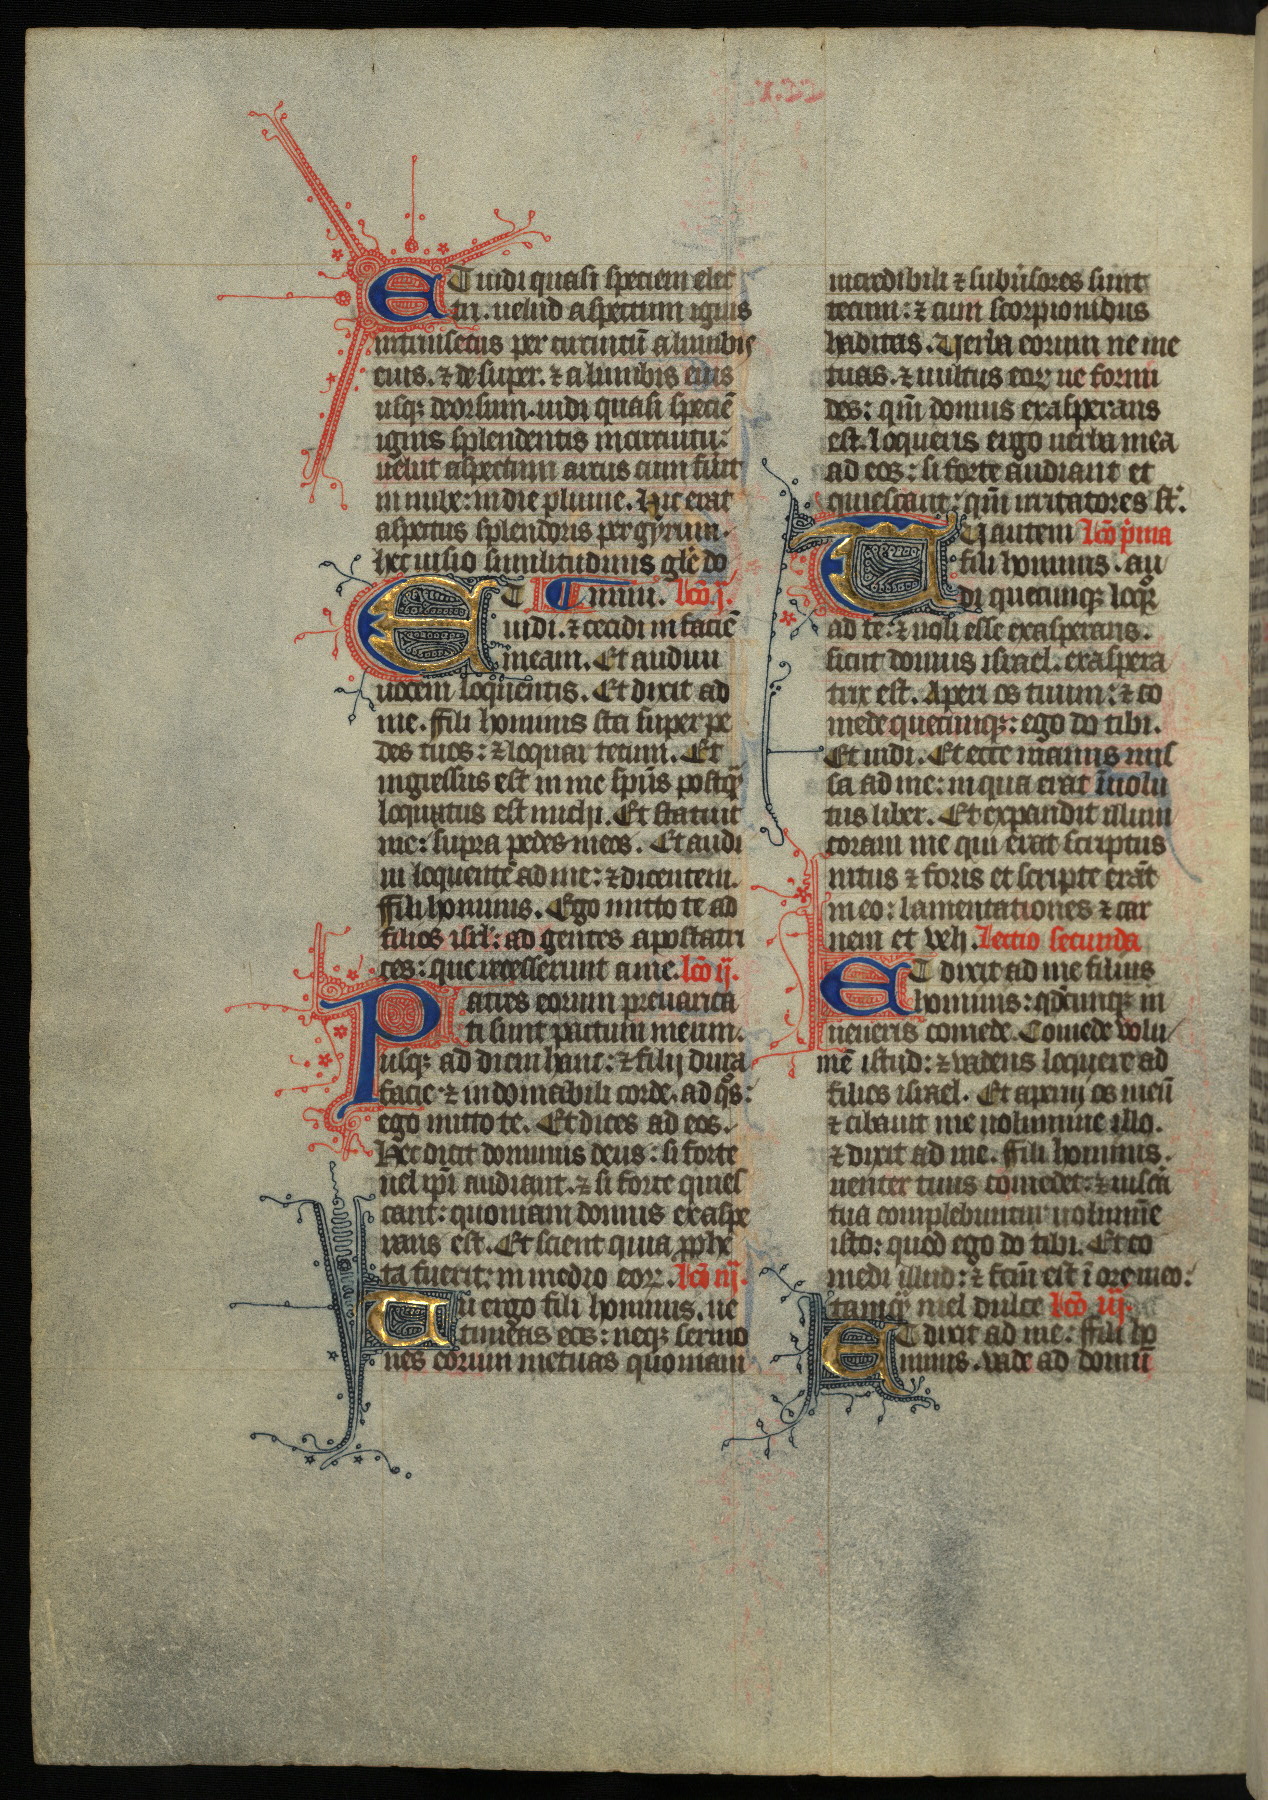 ET uidi quasi speciem elec
tri. uelud aspectum ignis
intrinsecus per circuitū a lumbis
eius. ⁊ desuper. ⁊ a lumbis eius
usq; deorsum. uidi quasi speciē
ignis splendentis in circuitu:
uelut aspectum arcus cum fūit
in nube: in die pluuie. Hic erat
aspectus splendoris per gyrum.
hec uisio similitudinis gl̄e do
ET mini. lc̄o j.
uidi. ⁊ cecidi in faciē
meam. Et audiui
uocem loquentis. Et dixit ad
me. ffili hominis sta super pe
des tuos: ⁊ loquar tecum. Et
ingressus est in me sp̄us postq̄
loqutus est michi. Et statuit
me: supra pedes meos. Et audi
ui loquentē ad me: ⁊ dicentem.
ffili hominis. Ego mitto te ad
filios isrl': ad gentes apostatri
ces: que recesserunt a me. lc̄o ij.
Patres eorum preuarica
ti sunt pactum meum.
usq; ad diem hanc: ⁊ filij dura
facie ⁊ indomabili corde. ad q̄s:
ego mitto te. Et dices ad eos.
Hec dicit dominus deus: si forte
uel ip̄i audiant. ⁊ si forte quies
cant: quoniam domus exaspe
rans est. Et scient quia pphē
ta fuerit: in medio eoꝝ. lc̄o iij.
Tu ergo fili hominis. ne
timeas eos: neq; sermo
nes eorum metuas quoniam
incredibili ⁊ subūsores sunt
tecum: ⁊ cum scorpionibus
habitas. Uerba eorum ne me
tuas. ⁊ uultus eoꝝ ne formi
des: qm̄ domus exasperans
est. Loqueris ergo uerba mea
ad eos: si forte audiant et
quiescant: qm̄ irritatores st̄.
TU autem lc̄o p̄ma
fili hominis. au
di quecunq; loq̄r
ad te: ⁊ noli esse exasperans.
sicut domus israel. exaspera
trix est. Aperi os tuum: ⁊ co
mede quecunq;: ego do tibi.
Et uidi. Et ecce manus mis
sa ad me: in qua erat īuolu
tus liber. Et expandit illum
coram me qui erat scriptus
intus ⁊ foris et scripte erāt
in eo: lamentationes ⁊ car
mem et veh. Lectio secunda
ET dixit ad me filius
hominis: qd̄cunq; in
ueneris comede. Comede volu
mē istud: ⁊ vadens loquere ad
filios israel. Et aperuj os meū
⁊ cibauit me uolumine illo.
⁊ dixit ad me. ffili hominis.
uenter tuus comedet: ⁊ uiscā
tua complebuntur uolumīe
isto: quod ego do tibi. Et co
medi illud: ⁊ fcm̄ est ī ore meo:
tamq̄ mel dulce lc̄o iij.
ET dixit ad me: ffili ho
minis. vade ad domū